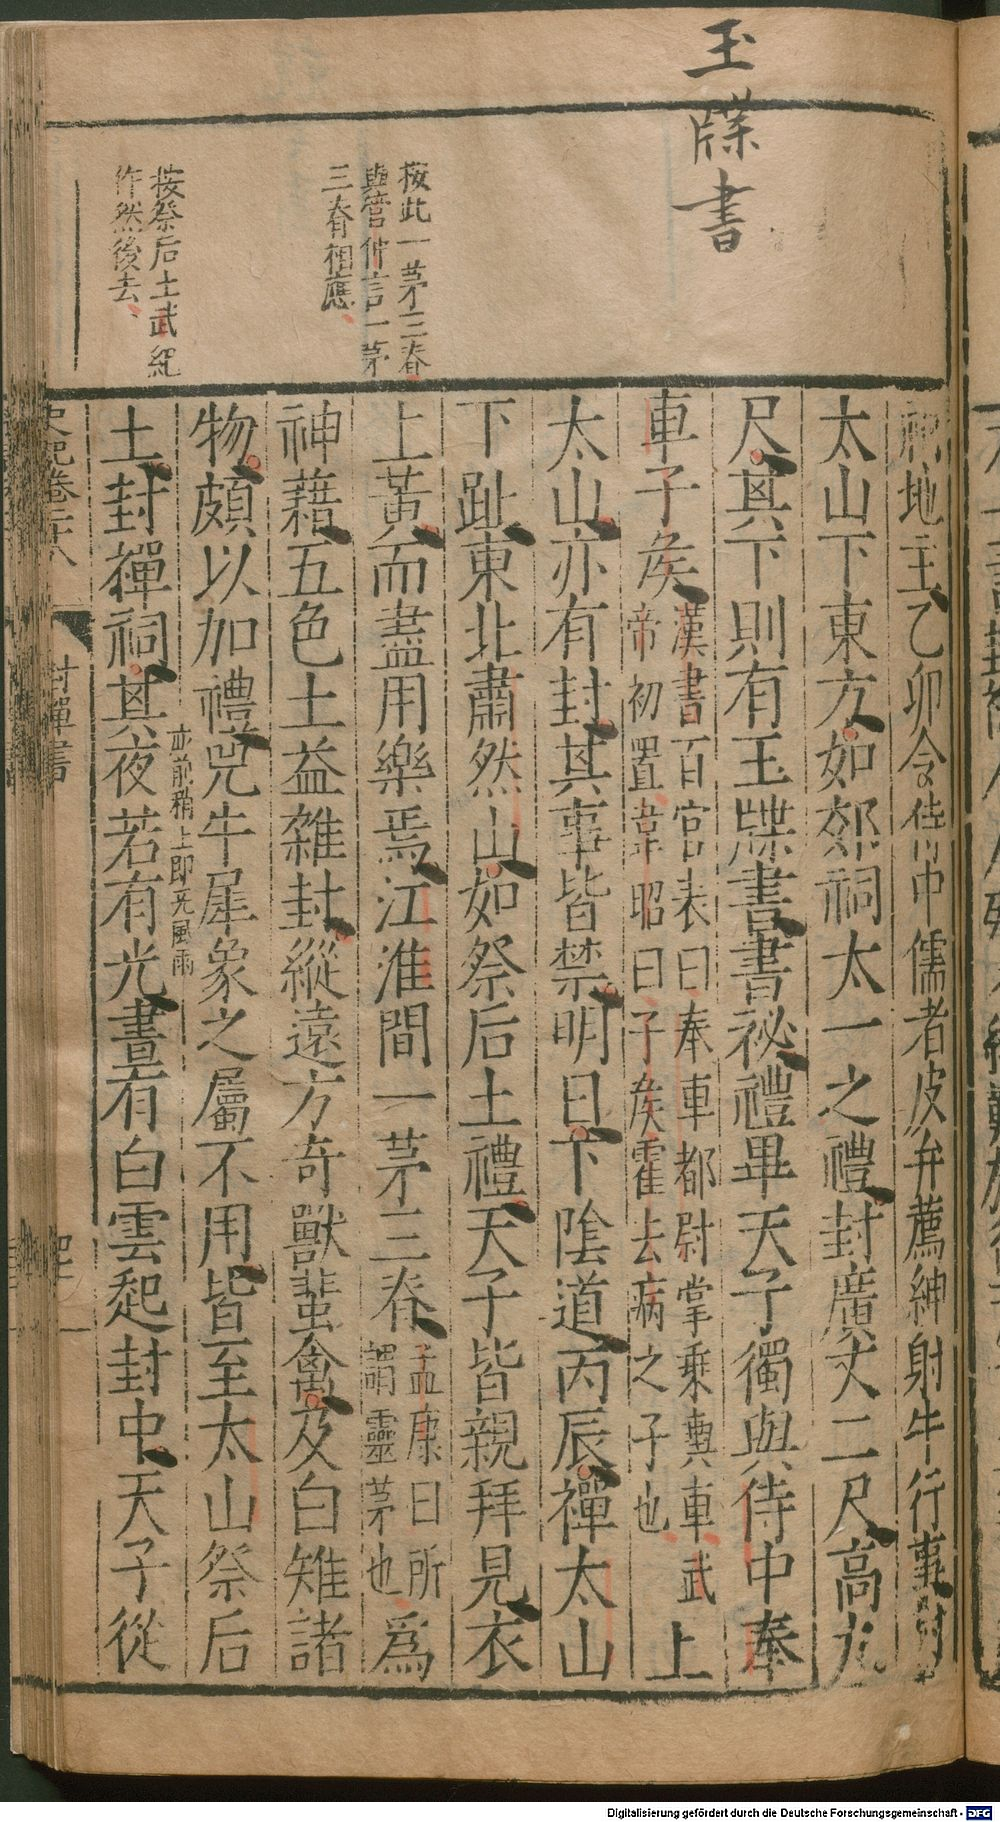 玉牒書
按此一茅三脊
與管仲言一茅
三脊相應
按祭后土武紀
作然後去
祠地主乙卯令侍中儒者皮弁薦紳射牛行事封
太山下東方如郊祠太一之禮封廣丈二尺高九
尺其下則有玉牒書書祕禮畢天子獨與侍中奉
車子矦
漢書百官表曰奉車都尉掌乘輿車武
帝初置韋昭曰子矦霍去病之子也
上
太山亦有封其事皆禁明日下陰道丙辰禪太山
下趾東北肅然山如祭后土禮天子皆親拜見衣
上黃而盡用樂焉江淮間一茅三脊
孟康曰所
謂靈茅也
爲
神藉五色土益雜封縱遠方奇獸蜚禽及白雉諸
物頗以加禮兕牛犀象之屬不用皆至太山祭后
亦前稍上即无風雨
土封禪祠其夜若有光晝有白雲起封中天子從
史記卷二十八
封禪書
Digitalisierung gefördert durch die Deutsche Forschungsgemeinschaft - DFG